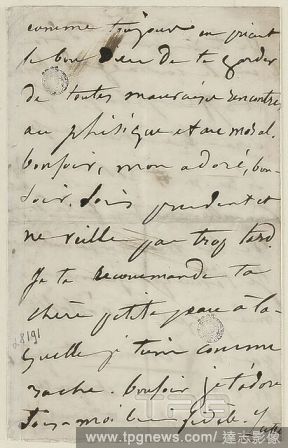 comme toujours en priant
le bon Dieu de te garder
de toutes mauvaises rencontres
au phisique et au moral.
bonsoir, mon adoré, bon-
soir. Sois prudent et
ne veille pas trop tard.
Je te recommande ta
chère petite peau à la-
quelle je tiens comme
rache. bonsoir je t'adore
Sois-moi fidèle
TPG
www.tpgnews.com / 達志影像